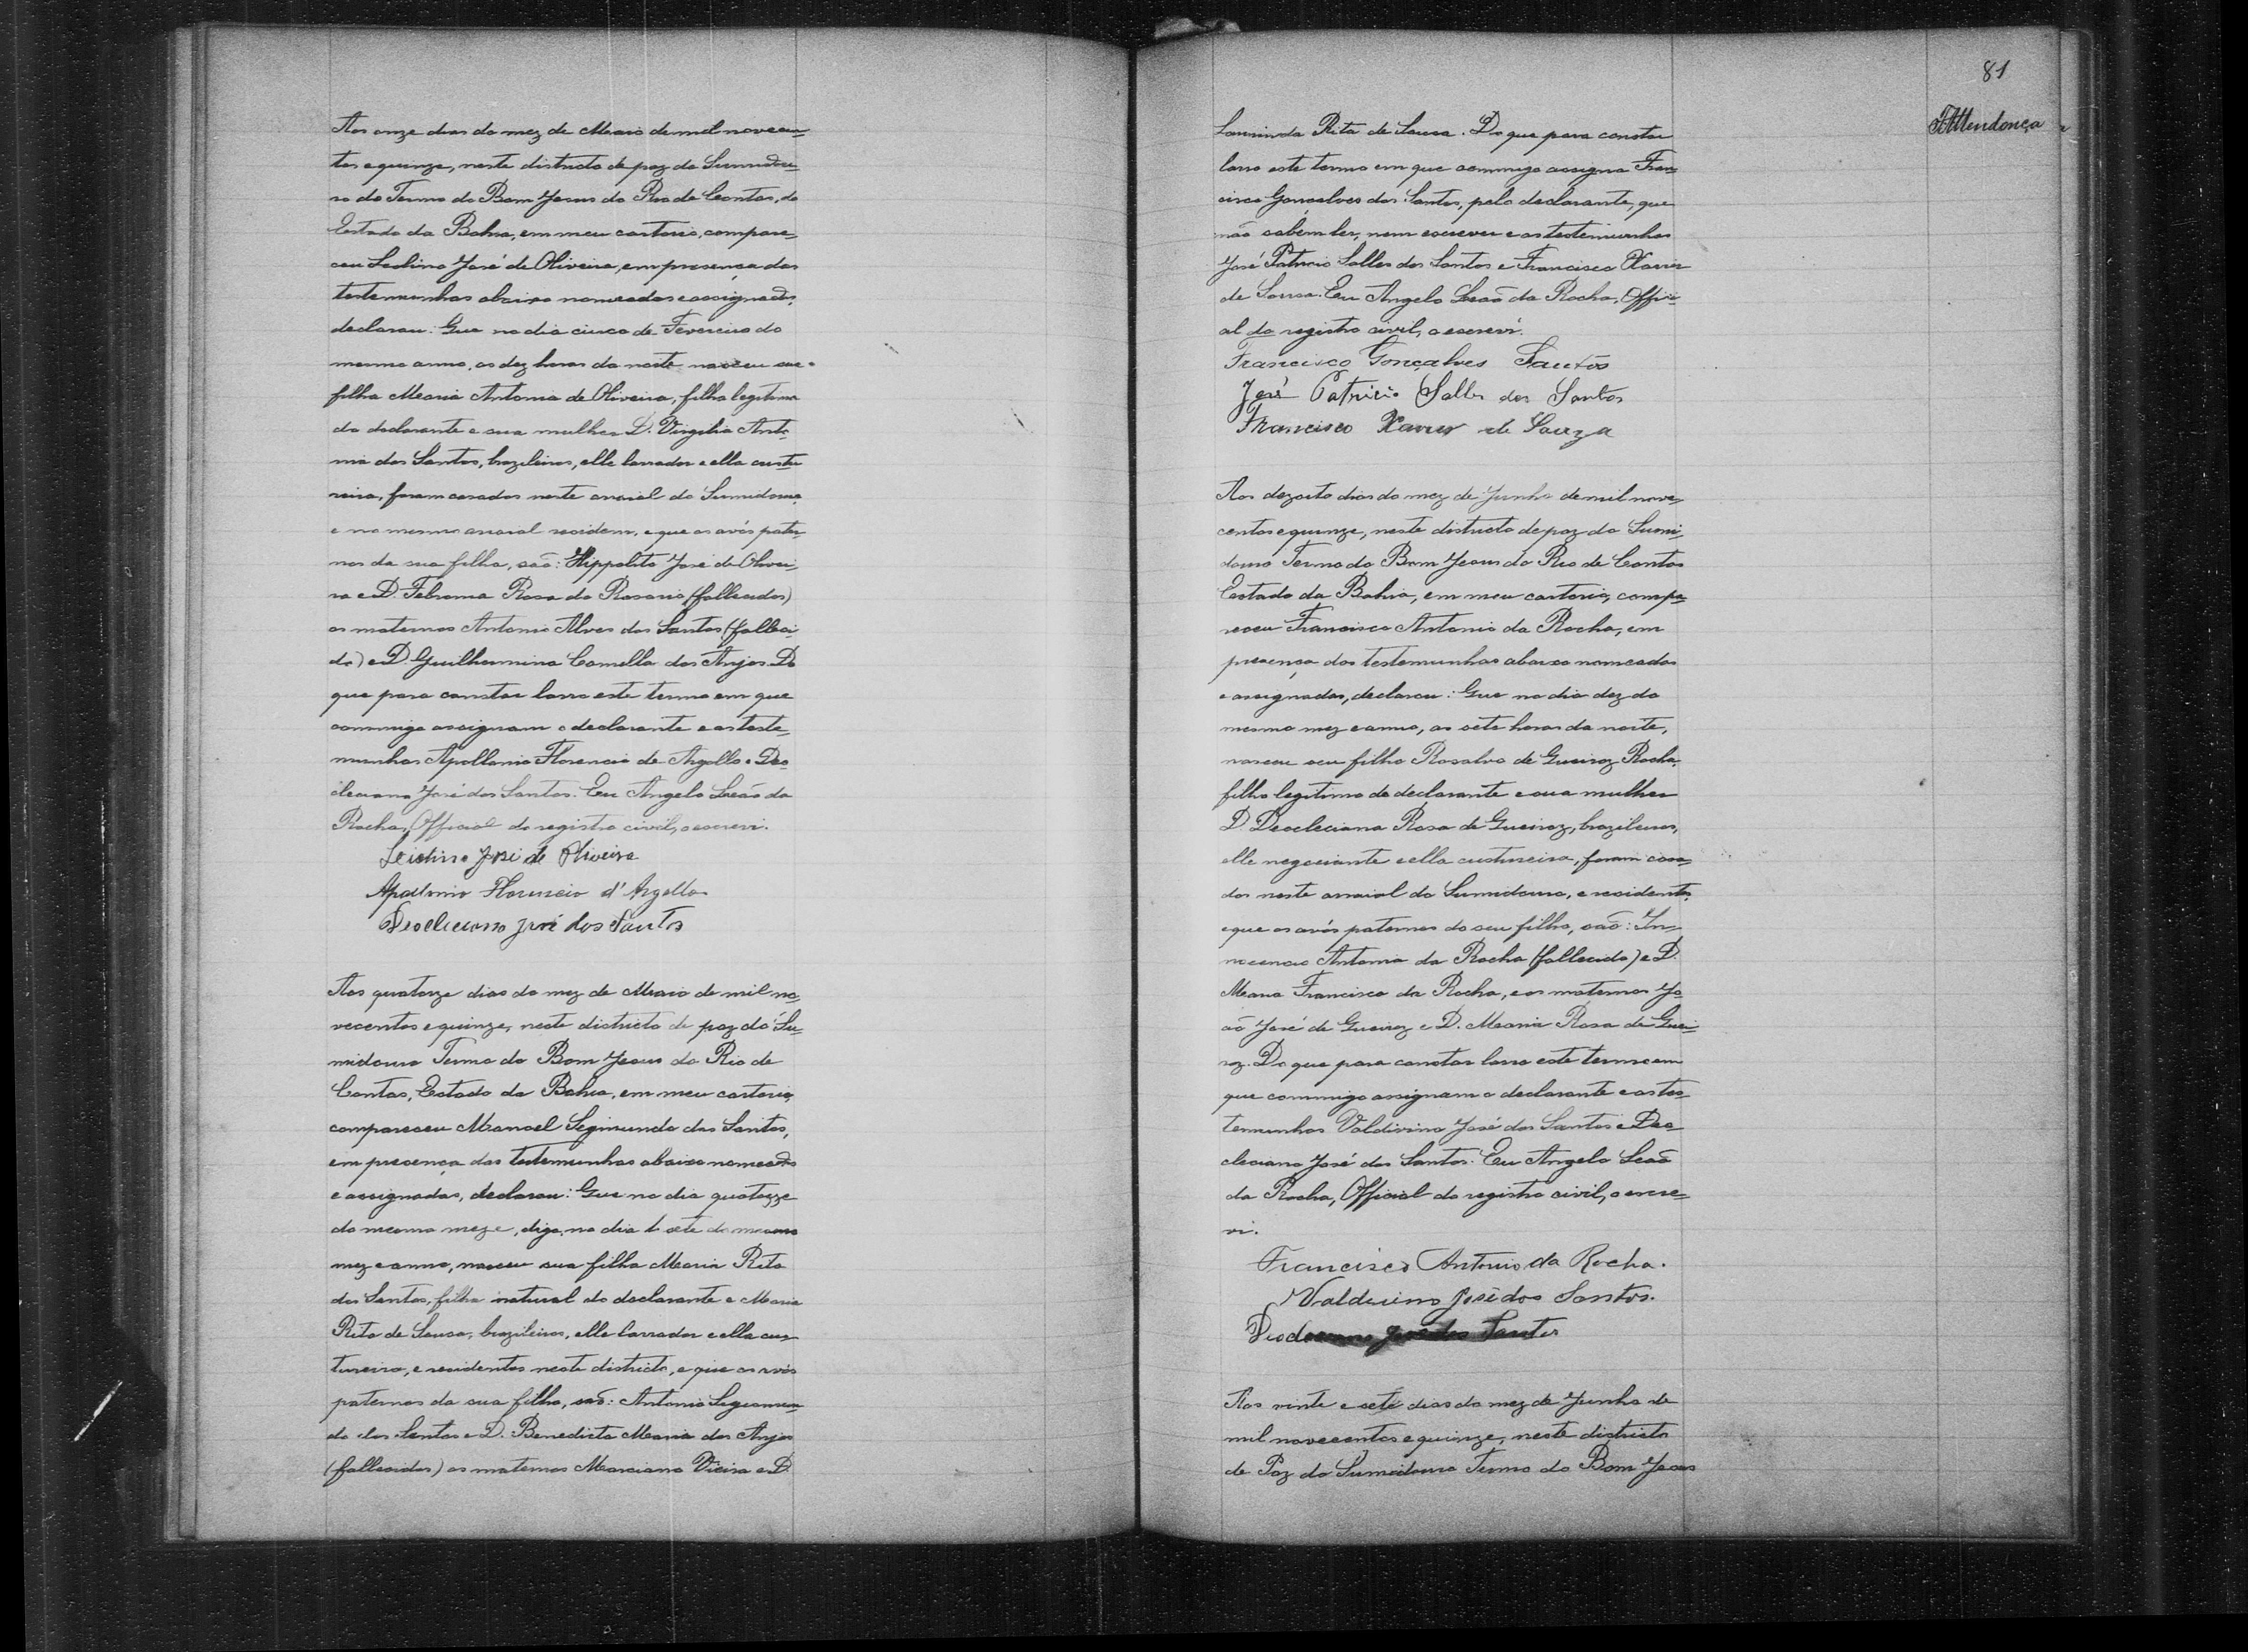 Aos onze dias do mez de Maio de mil novecen-
tos e quinze, neste districto de paz do Sumidou-
ro do Termo do Bom Jesus do Rio de Contas, do
Estado da Bahia, em meu cartorio, compare-
ceu José de Oliveira, em presença das
testemunhas abaixo nomeadas e assignads,
declarou: Que no dia cinco de Fevereiro do
mesmo anno, as dez horas da noite nasceu sua
filha Maria Antonia de Oliveira, filha legitima
do declarante e sua mulher D. Virgilia Anto-
nia dos Santos, brazileiros, elle lavrador e ella custu
reira, foram casados neste arraial do Sumidouro,
e no mesmo arraial residem, e que os avós pater-
nos da sua filha, saõ: Hippolito José de Olivei-
ra e D. Rosa do Rosario (fallecidos)
os maternos Antonio Alves dos Santos (falleci
do) e D. Guilhermina Camella dos Anjos. Do
que para constar lavro este termo em que
commigo assignam o declarante e as teste-
munhas Apollonio Florencio de Argollo e Deo-
cleciano José dos Santos. Eu Angelo Leaõ da
Rocha, Official do registro civil, o escrevi.
José de Oliveira
Apollonio Florencio d'Argollo
Deocleciano José dos Santos
Aos quatorze dias do mez de Maio de mil no-
vecentos e quinze, neste districto de paz do Su-
midouro Termo do Bom Jesus do Rio de
Contas, Estado da Bahia, em meu cartorio,
compareceu Manoel Segimundo dos Santos,
em presença das testemunhas abaixo nomeads
e assignadas, declarou: Que no dia quatorze
do mesmo mez e, digo, no dia sete do mesmo
mez e anno, nasceu sua filha Maria Rita
dos Santos, filha natural do declarante e Maria
Rita de Sousa, brazileiros, elle lavrador e ella cus
tureira, e residentes neste districto, e que os avós
paternos da sua filha, saõ: Antonio Segismun-
do dos Santos e D. Benedicta Maria dos Anjos
(fallecidos) os maternos Marciano Vieira e D.
81
Mendonça
Laurinda Rita de Sousa. Do que para constar
lavro este termo em que commigo assigna Fran-
cisco Gonsalves dos Santos, pelo declarante, que
não sabem ler, nem escrever e as testemunhas
José Patricio Salles dos Santos e Francisco Xavier
de Sousa. Eu Angelo Leaõ da Rocha, Offici-
al do registro civil, o escrevi.
Francisco Gonçalves Santos
José Patricio Salles dos Santos
Francisco Xavier de Souza
Aos dezoito dias do mez de Junho de mil nove-
centos e quinze, neste districto de paz do Sumi-
douro Termo do Bom Jesus do Rio de Contas
Estado da Bahia, em meu cartorio, compa-
receu Francisco Antonio da Rocha, em
presença das testemunhas abaixo nomeadas
e assignadas, declarou: Que no dia dez do
mesmo mez e anno, as sete horas da noite,
nasceu seu filho Rosalvo de Queiroz Rocha,
filho legitimo do declarante e sua mulher
D. Deocleciana Rosa de Queiroz, brazileiros,
elle negociante e ella custureira, foram casa-
dos neste arraial do Sumidouro, e residentes,
e que os avós paternos do seu filho, saõ: In-
nocencio Antonio da Rocha (fallecido) e D.
Maria Francisca da Rocha, e os maternos Jo-
aõ José de Queiroz e D. Maria Rosa de Quei-
roz. Do que para constar lavro este termo em
que commigo assignam o declarante e as tes-
temunhas Valdivino José dos Santos e Deo-
cleciano José dos Santos. Eu Angelo Leaõ
da Rocha, Official do registro civil, o escre-
vi.
Francisco Antonio da Rocha.
Valdivino José dos Santos.
Deocleciano José dos Santos
Aos vinte e sete dias do mez de Junho de
mil novecentos e quinze, neste districto
de Paz do Sumidouro Termo do Bom Jesus